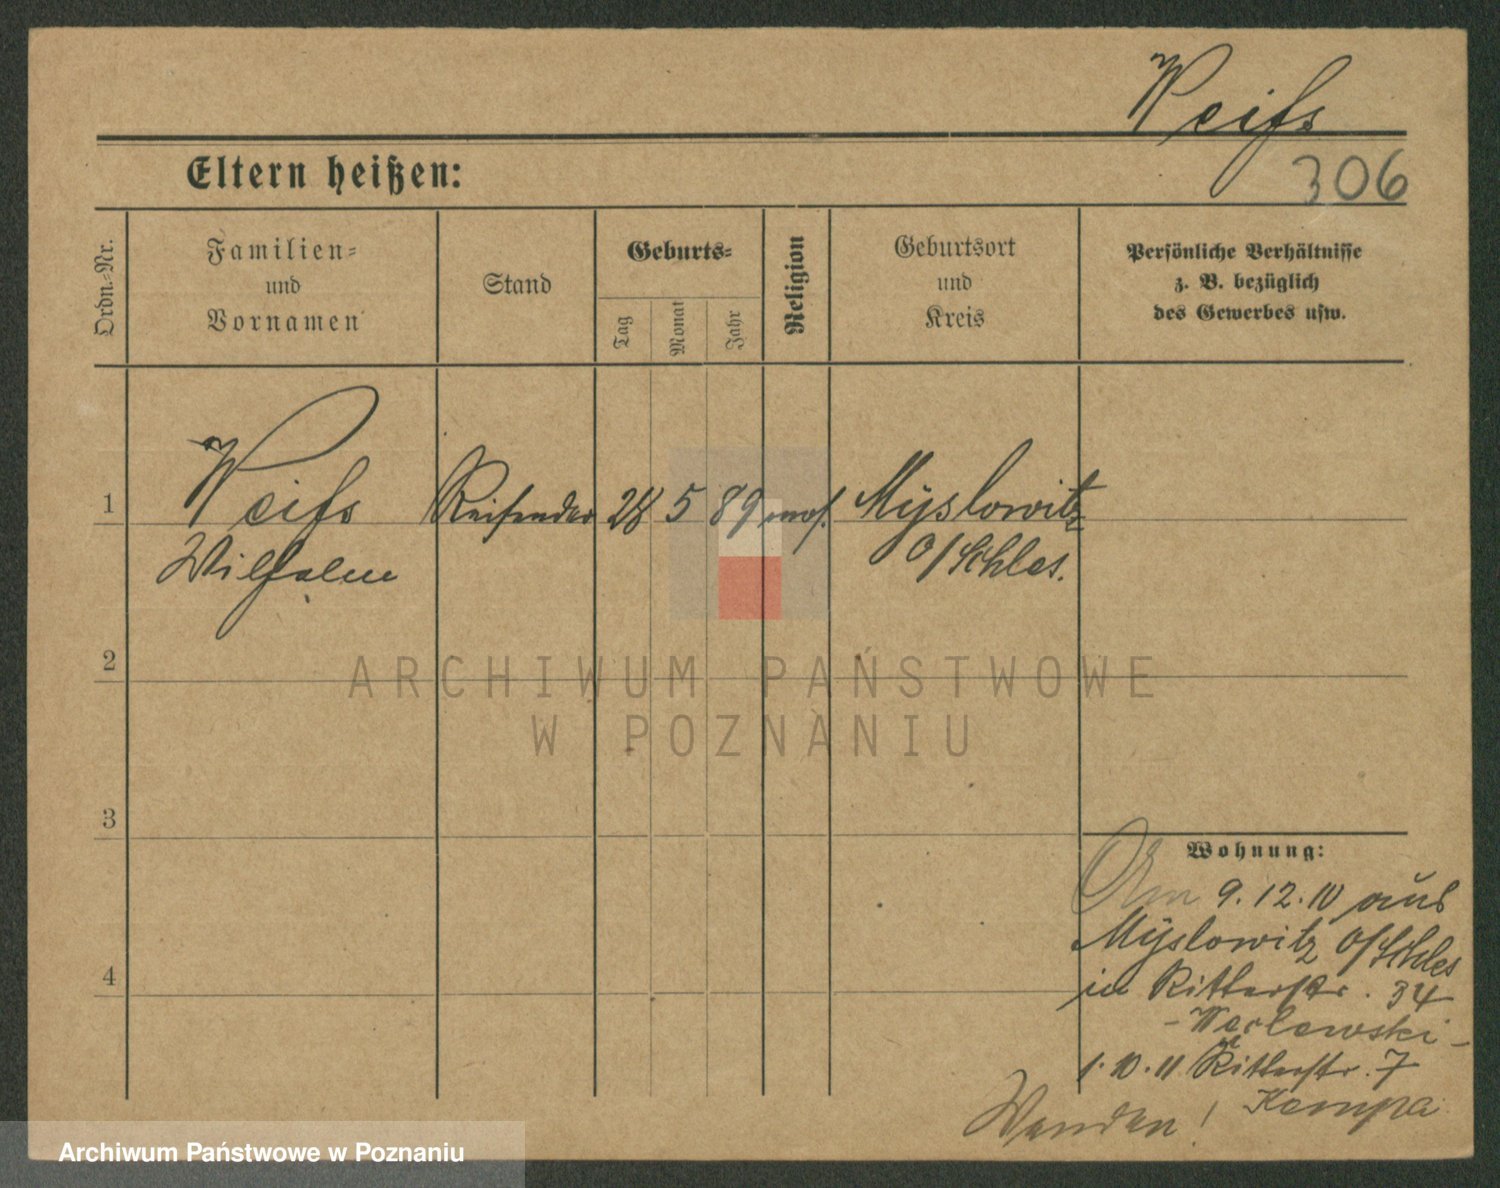 Weiß
Eltern heißen:
306
Ordn.-Nr.
Familien-
und
Vornamen
Stand
Geburts-
Tag
Monat
Jahr
Religion
Geburtsort
und
Kreis
Persönliche Verhältnisse
z. B. bezüglich
des Gewerbes usw.
1
Weiß
Reisender
28
5
89
mos.
Myslowitz
Wilhelm
O/Schles.
2
ARCHIWUM PAŃSTWOWE
W POZNANIU
3
Wohnung:
Am 9.12.10 aus
Myslowitz O/Schles
4
in Ritterstr. 34
- Weclewski -
1.10.11 Ritterstr. 7
Kempa
Wenden!
Archiwum Państwowe w Poznaniu